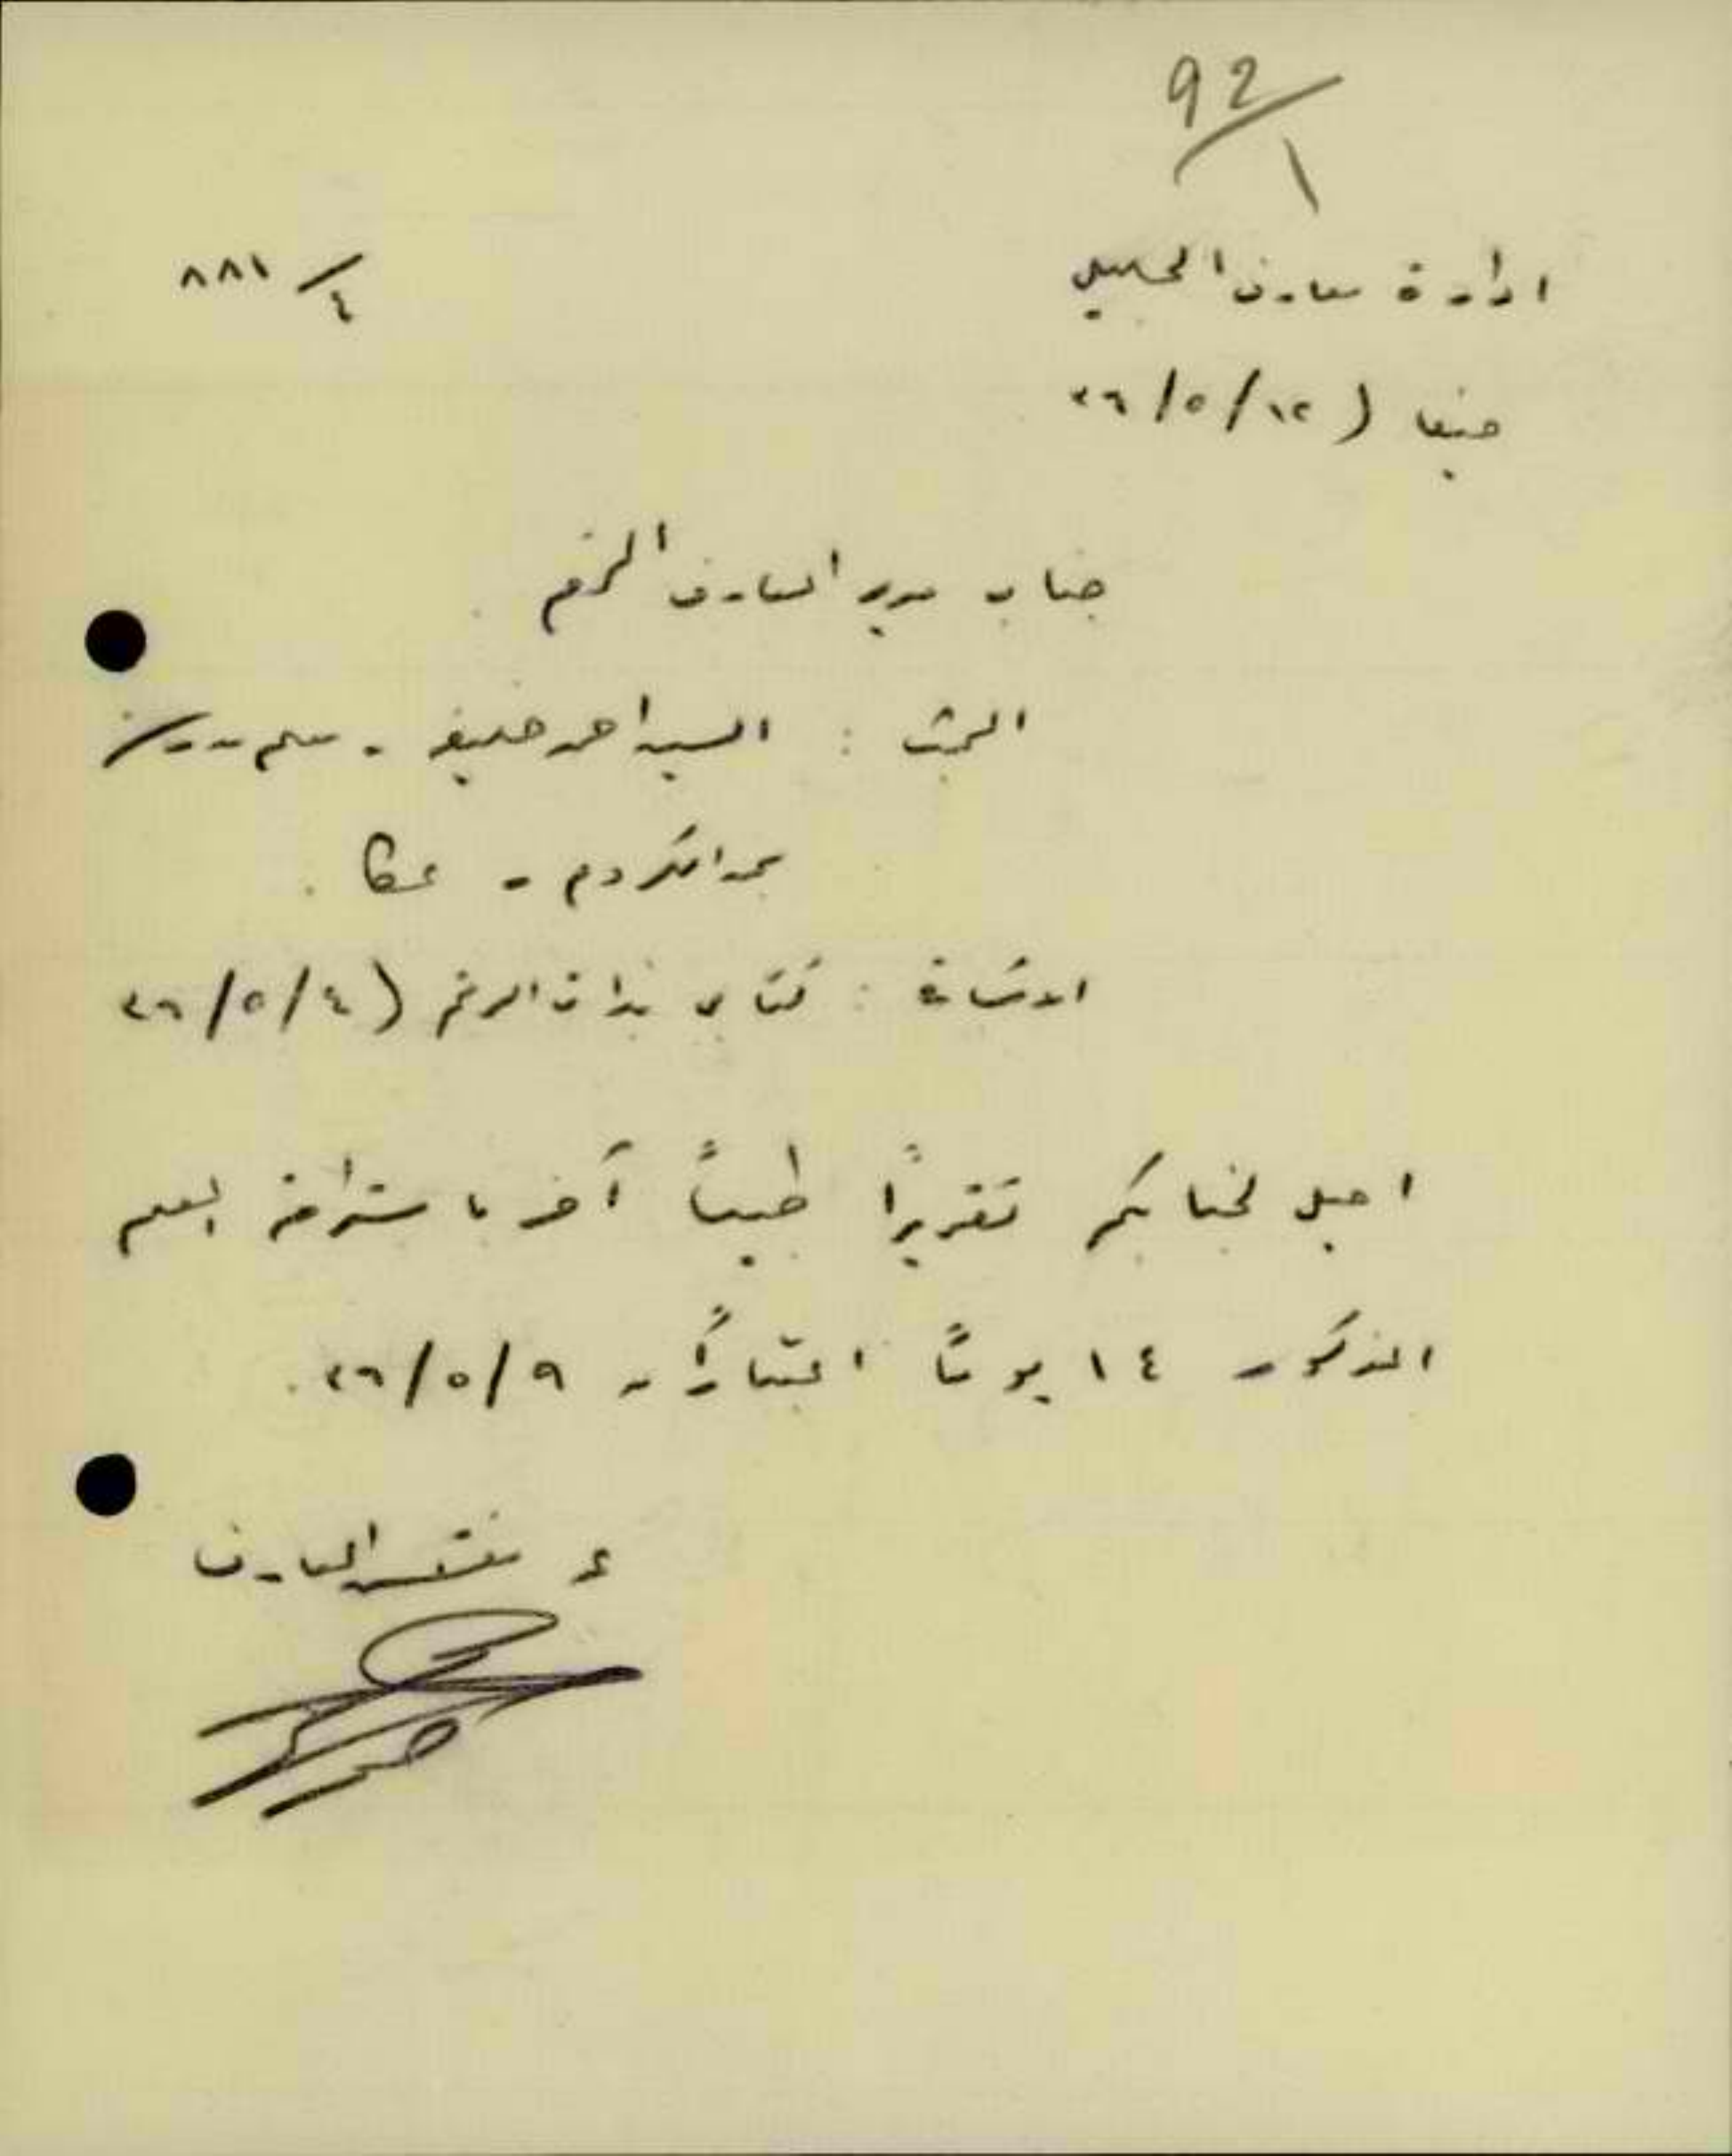 92/1
ادارة معارف الجليل
٤/٨٨١
حيفا ( ١٢/٥/٣٦
جناب مدير المعارف المحترم
البحث : السيد احمد خليفه - معلم مدرسة
مجد الكروم - عكا .
الاشارة : كتابي بذات الرقم ( ٤/٥/٣٦
احيل لجنابكم تقريرًا طبيًا آخر باستراحة المعلم
المذكور ١٤ يومًا اعتبارًا من ٩/٥/٣٦ .
ع مفتش المعارف